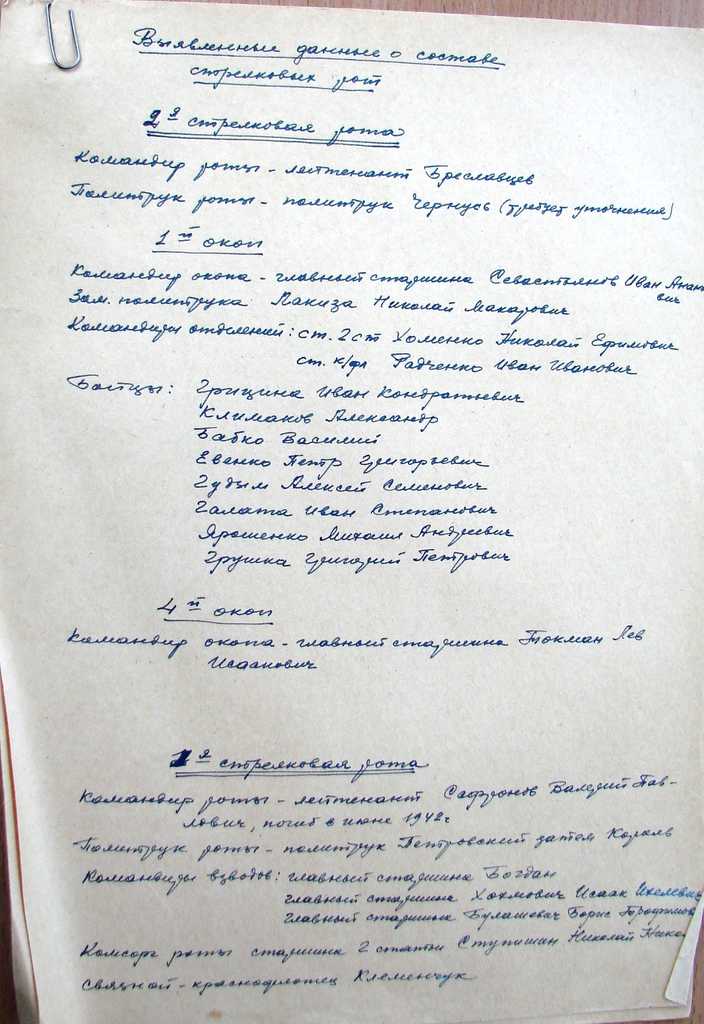 Выявленные данные о составе
стрелковых рот
2я стрелковая рота
Командир роты - лейтенант Бреславцев
Политрук роты - политрук Чернусь (требует уточнения)
1й окоп
Командир окопа - главный старшина Севастьянов Иван Анань
вич
Зам. политрука Лакиза Николай Макарович
Командиры отделений: ст. 2 ст Хоменко Николай Ефимович
ст. к/фл Радченко Иван Иванович
Бойцы: Грицина Иван Кондратьевич
Климаков Александр
Бабко Василий
Евенко Петр Григорьевич
Гудым Алексей Семенович
Галата Иван Степанович
Ярошенко Михаил Андреевич
Грушка Григорий Петрович
4й окоп
Командир окопа - главный старшина Токман Лев
Исаакович
1я стрелковая рота
Командир роты - лейтенант Сафронов Валерий Пав-
лович, погиб в июне 1942г
Политрук роты - политрук Петровский затем Король
Командиры взводов: главный старшина Богдан
главный старшина Хохмович Исаак
главный старшина Булашевич Борис
Комсорг роты старшина 2 статьи Ступишин Николай
Связной - краснофлотец Клеменчук